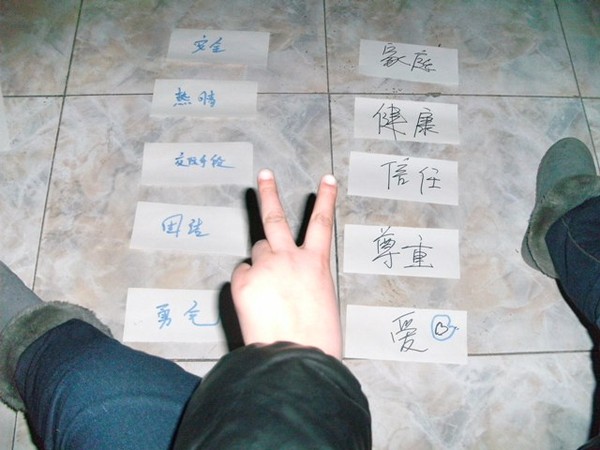 安全
热情
团结
勇气
家庭
健康
信任
尊重
爱